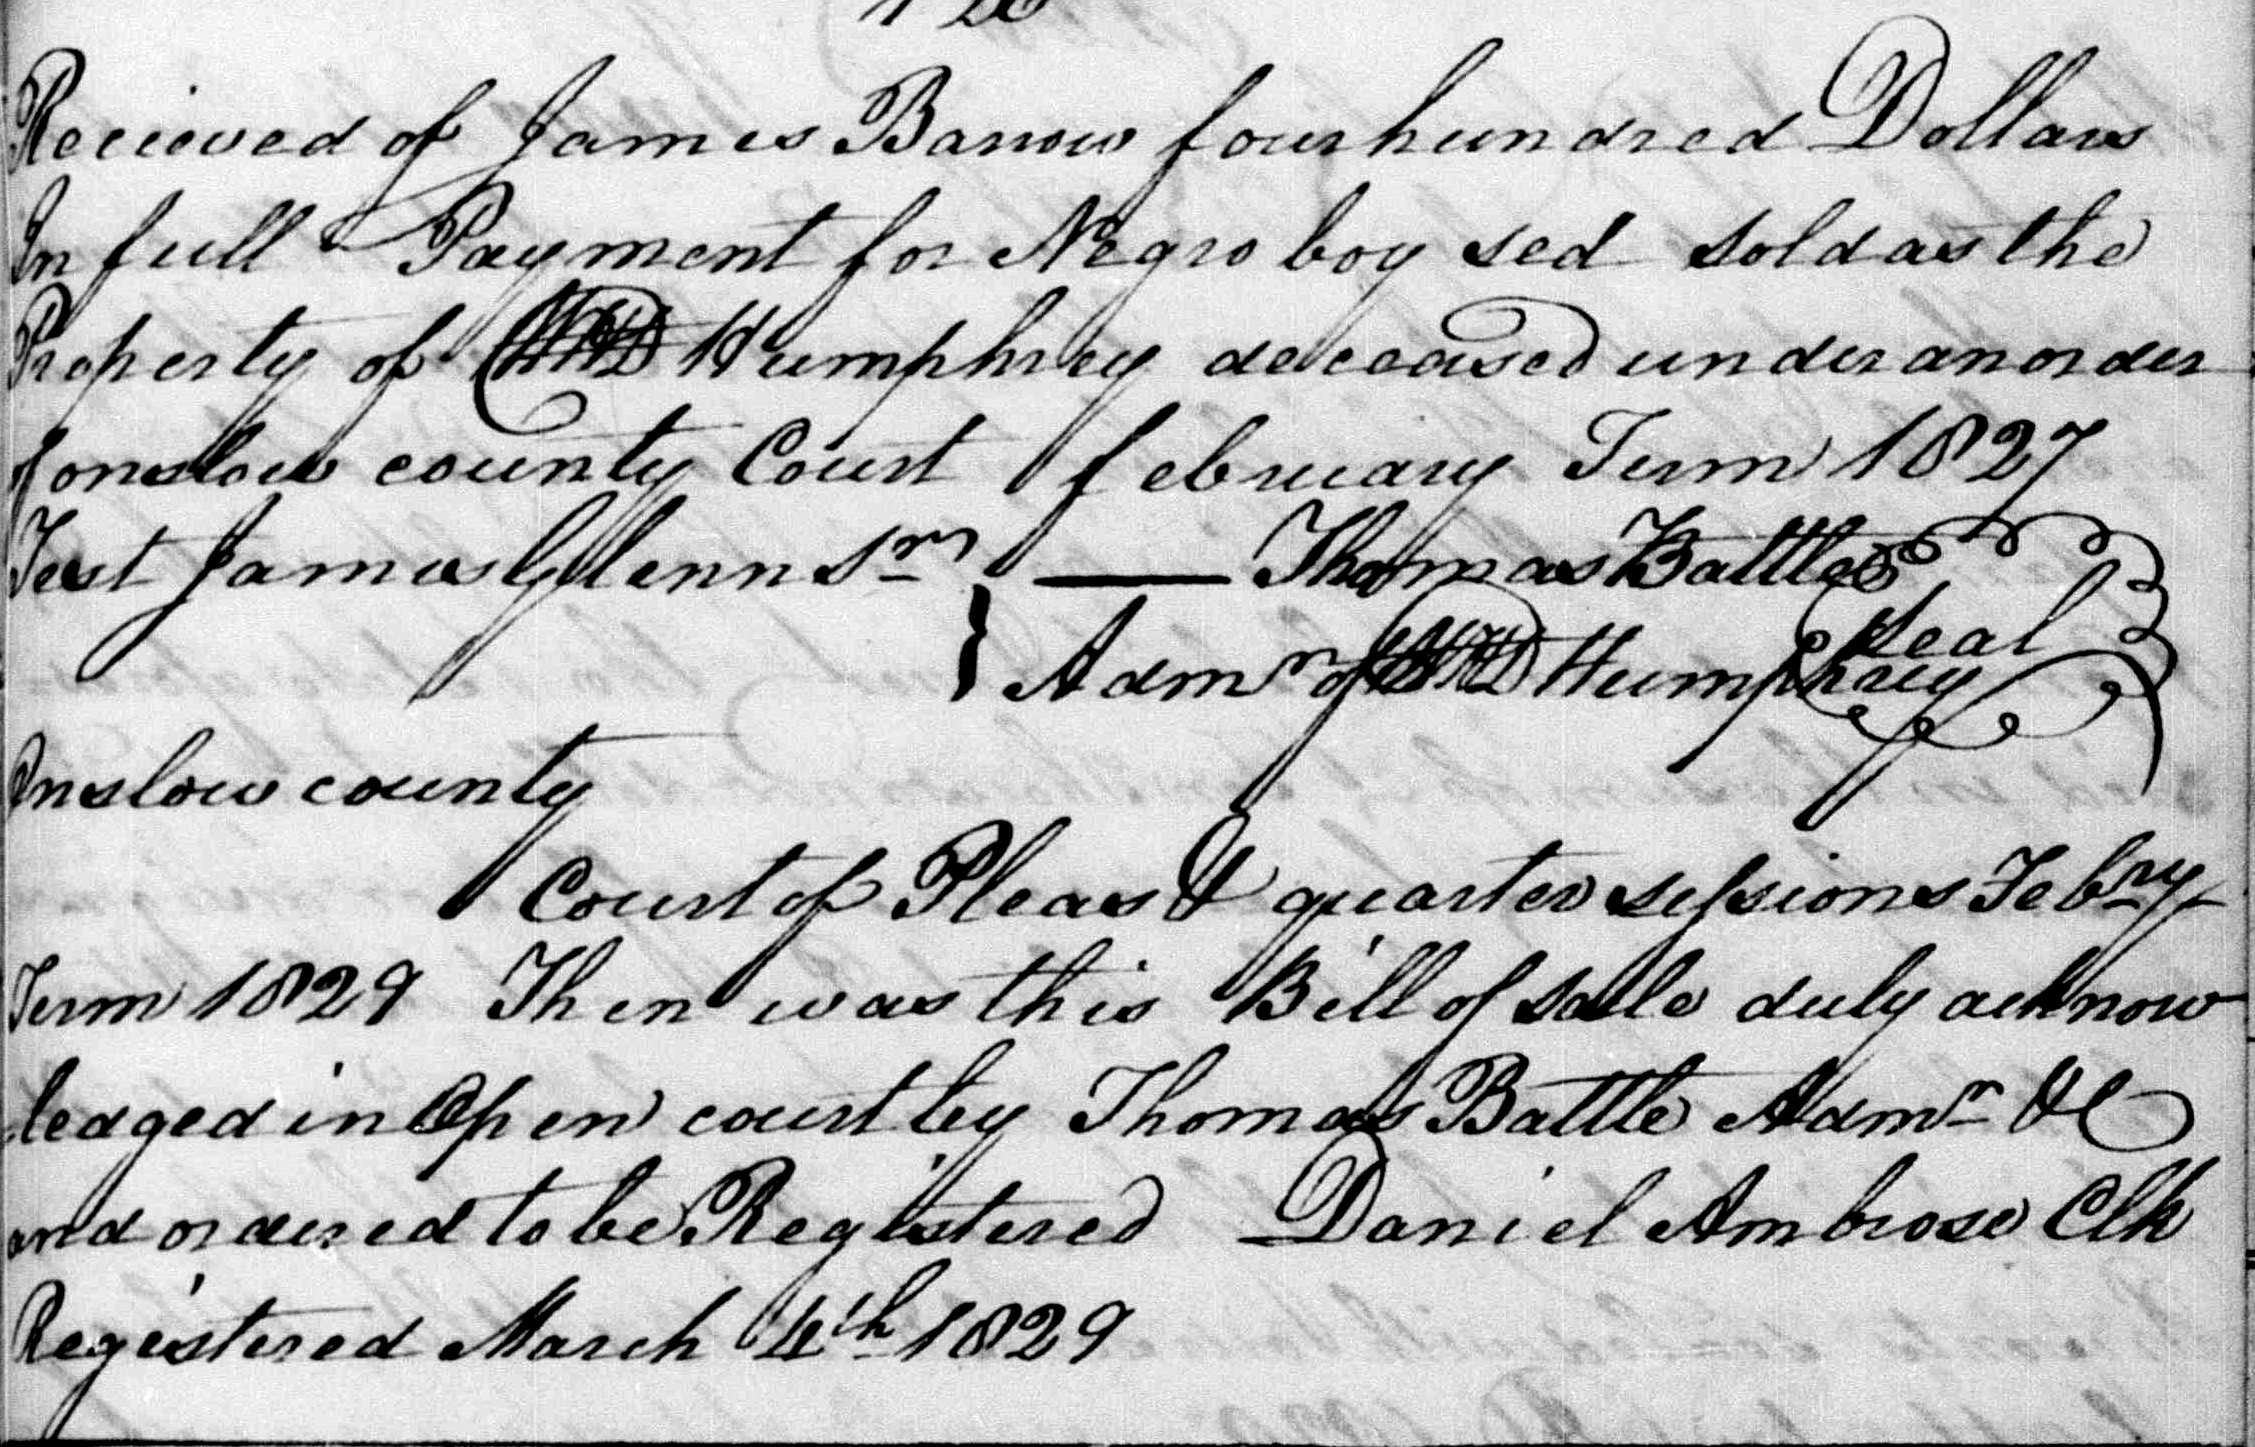 Recieved of James Barrow four hundred Dollars
In full Payment for Negro boy sed sold as the
Property of Humphrey deceased under an order
of onslow county Court february Term 1827
Test James Glenn Sr Thomas Battle
Seal
} Admr of Humphrey
Onslow county
Court of Pleas & quarter sessions Febry
Term 1829 Then was this Bill of sale duly acknow
ledged in Open court by Thomas Battle Admr &c
and ordered to be Registered Daniel Ambrose Clk
Registered March 4th 1829